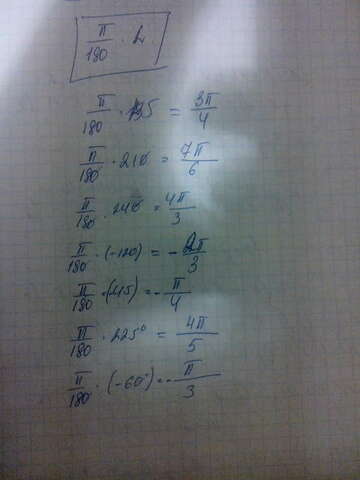 π/180 · L
π/180 · 135 = 3π/4
π/180 · 210 = 7π/6
π/180 · 240 = 4π/3
π/180 · (-120) = - 2π/3
π/180 · (-45) = - π/4
π/180 · 225° = 4π/5
π/180 · (-60°) = - π/3